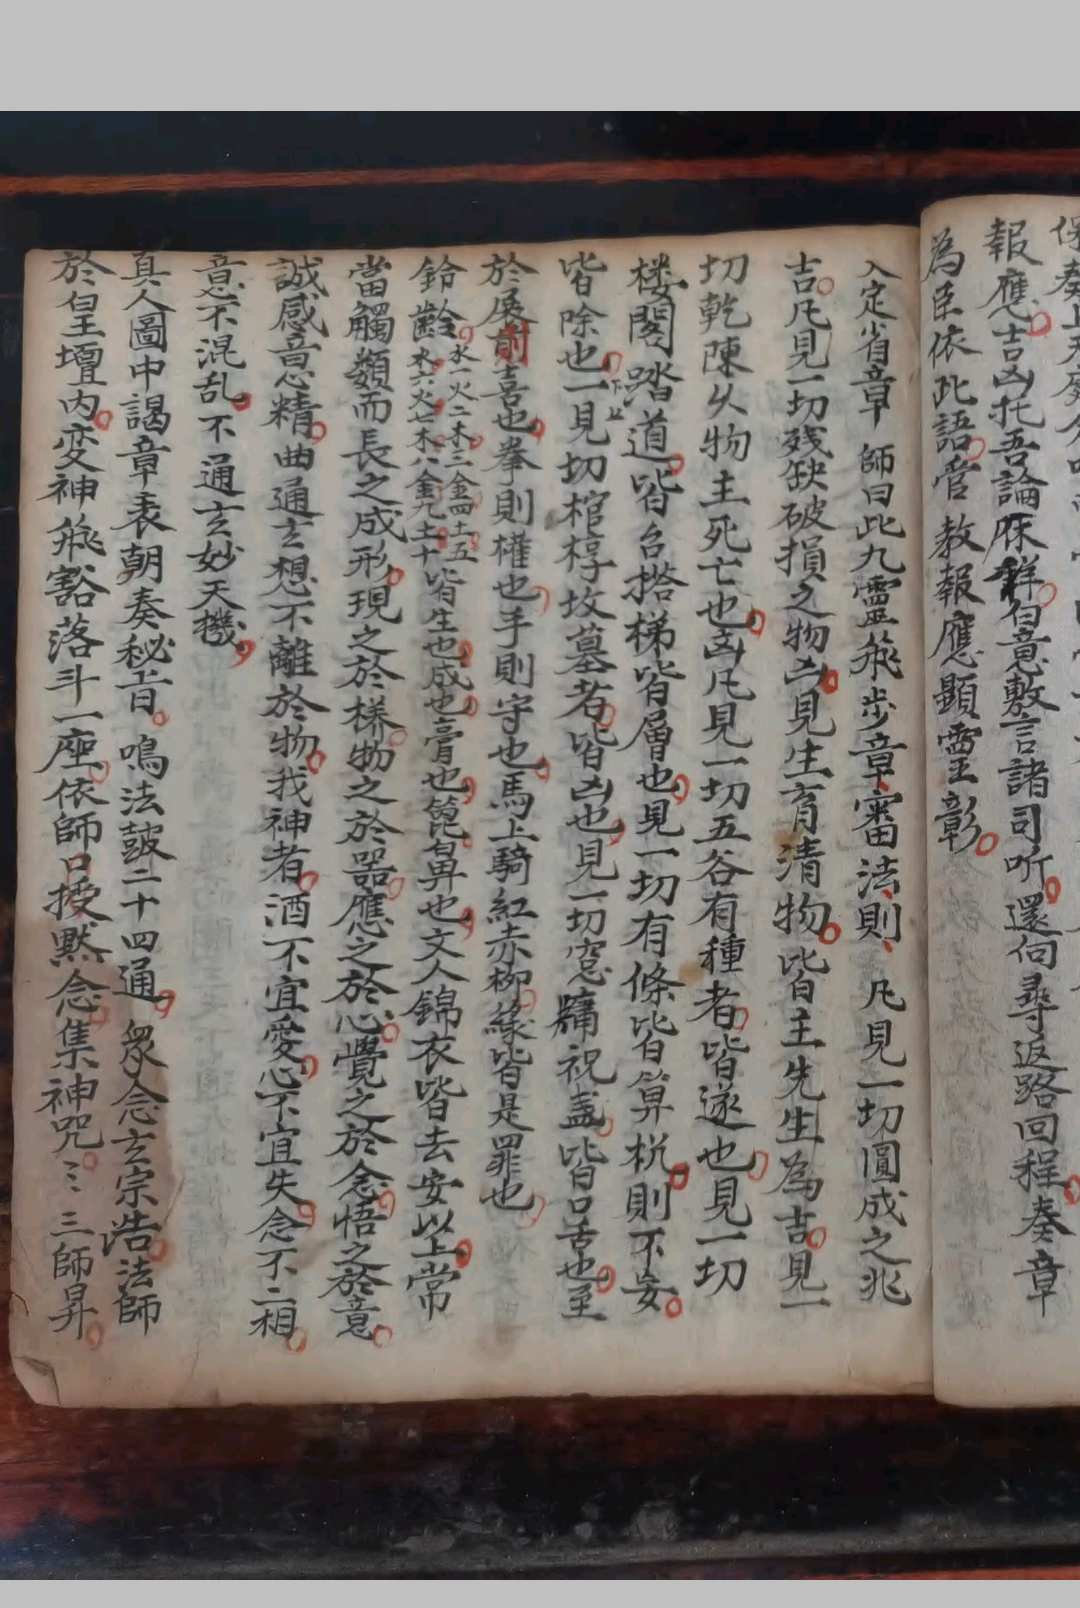 保奏上天庭
報應吉凶托吾論麻鮮自意敷言諸司听還何尋返路回程奏章
為臣依此語管教報應顯靈彰
入定省章 師曰此九靈飛步章審法則 凡見一切圓成之兆
吉凡見一切殘缺破損之物凶見生育清物皆主先生為吉見一
切乾陳久物主死亡也凶凡見一切五谷有種者皆遂也見一切
楼閣踏道皆台搭梯皆層也見一切有條皆算梲則不妄
皆除也一見切棺椁坟墓者皆凶也見一切窓牗祝盞皆口舌也至
於展則喜也拳則權也手則守也馬上騎紅赤柳緣皆是罪也
鈴齡水一火二木三金四土五水六火七木八金九土十皆生也成也膏也箆鼻也文人錦衣皆去安以上常
當觸類而長之成形現之於樣物之於器應之於心覺之於念悟之於意
誠感意精曲通玄想不離於物我神者酒不宜愛心不宜失念不二相
意不混乱不通玄妙天機
真人圖中謁章表朝奏秘旨 鳴法鼓二十四通 衆念玄宗浩法師
於皇壇內变神飛豁落斗一座依師口授黙念集神咒〻三師昇